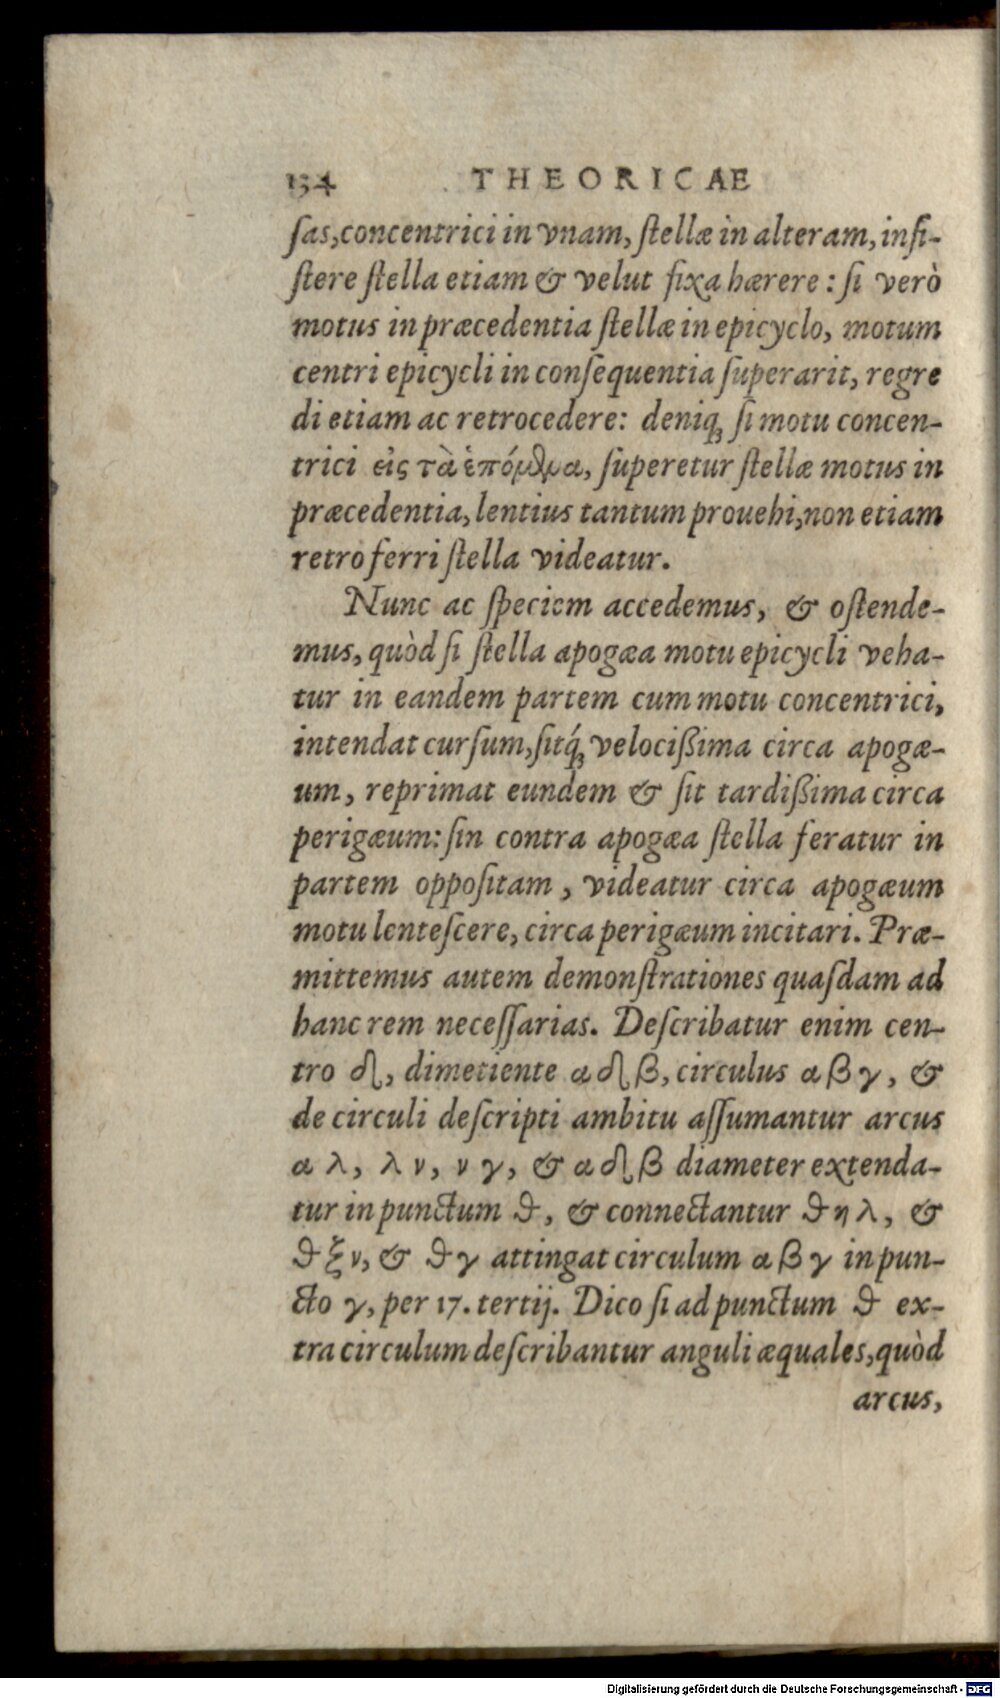 134 THEORICAE
ſas,concentrici in vnam, ſtellæ in alteram, inſi-
ſtere ſtella etiam & velut fixa hærere : ſi verò
motus in præcedentia ſtellæ in epicyclo, motum
centri epicycli in conſequentia ſuperarit, regre
di etiam ac retrocedere: deniq; ſi motu concen-
trici εἰς τὰ ἑπόμϑμα, ſuperetur ſtellæ motus in
præcedentia, lentius tantum prouehi,non etiam
retro ferri ſtella videatur.
Nunc ac ſpeciem accedemus, & oſtende-
mus, quòd ſi ſtella apogæa motu epicycli veha-
tur in eandem partem cum motu concentrici,
intendat curſum,ſitq́; velocißima circa apogæ-
um, reprimat eundem & ſit tardißima circa
perigæum: ſin contra apogæa ſtella feratur in
partem oppoſitam , videatur circa apogæum
motu lenteſcere, circa perigæum incitari. Præ-
mittemus autem demonſtrationes quaſdam ad
hanc rem neceſſarias. Deſcribatur enim cen-
tro δ, dimetiente α δ β, circulus α β γ, &
de circuli deſcripti ambitu aſſumantur arcus
α λ, λ ν, ν γ, & α δ β diameter extenda-
tur in punctum ϑ, & connectantur ϑ η λ, &
ϑ ξ ν, & ϑ γ attingat circulum α β γ in pun-
cto γ, per 17. tertij. Dico ſi ad punctum ϑ ex-
tra circulum deſcribantur anguli æquales,quòd
arcus,
Digitalisierung gefördert durch die Deutsche Forschungsgemeinschaft - DFG